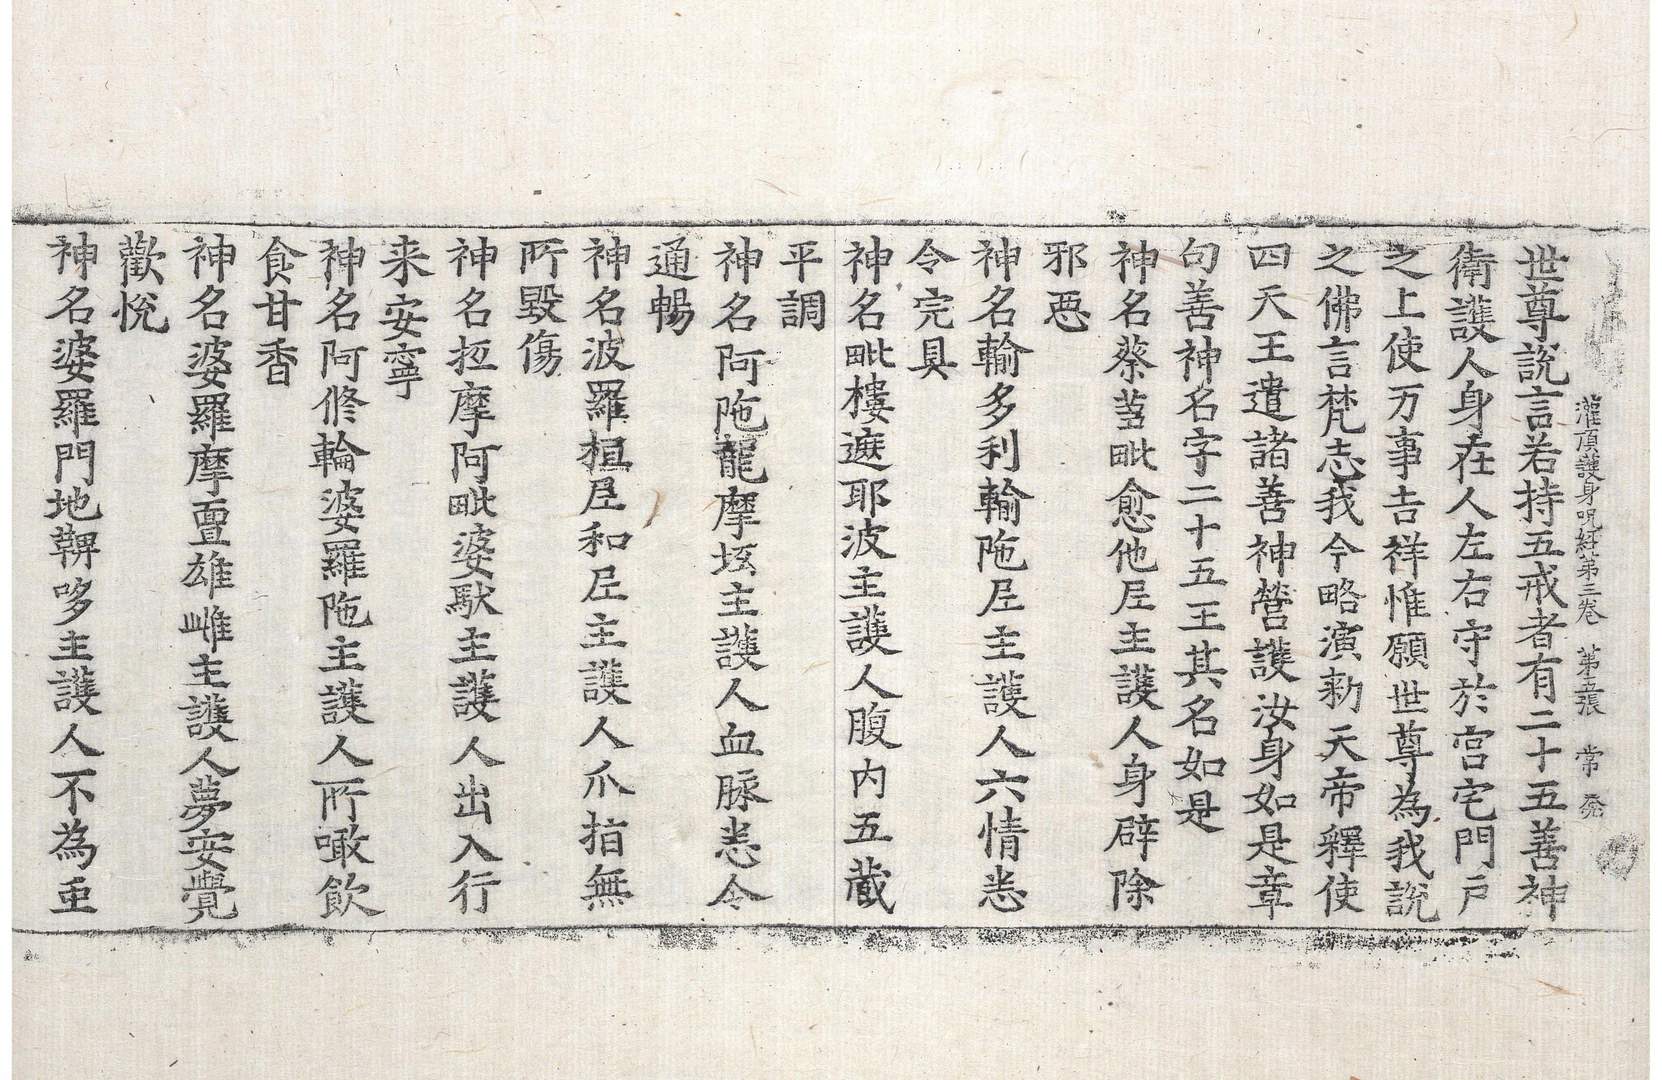 灌頂護身呪經第三卷 第五張 常
世尊說言若持五戒者有二十五善神
衛護人身在人左右守於宮宅門戶
之上使万事吉祥惟願世尊為我說
之佛言梵志我今略演勑天帝釋使
四天王遣諸善神營護汝身如是章
句善神名字二十五王其名如是
神名蔡芻毗愈他尼主護人身辟除
邪惡
神名輸多利輸陁尼主護人六情悉
令完具
神名毗樓遮耶波主護人腹內五藏
平調
神名阿陁龍摩坻主護人血脉悉令
通暢
神名波羅桓尼和尼主護人爪指無
所毀傷
神名坻摩阿毗婆馱主護人出入行
来安寧
神名阿修輪婆羅陁主護人所噉飲
食甘香
神名婆羅摩亶雄雌主護人夢安覺
歡悅
神名婆羅門地鞞哆主護人不為䖝